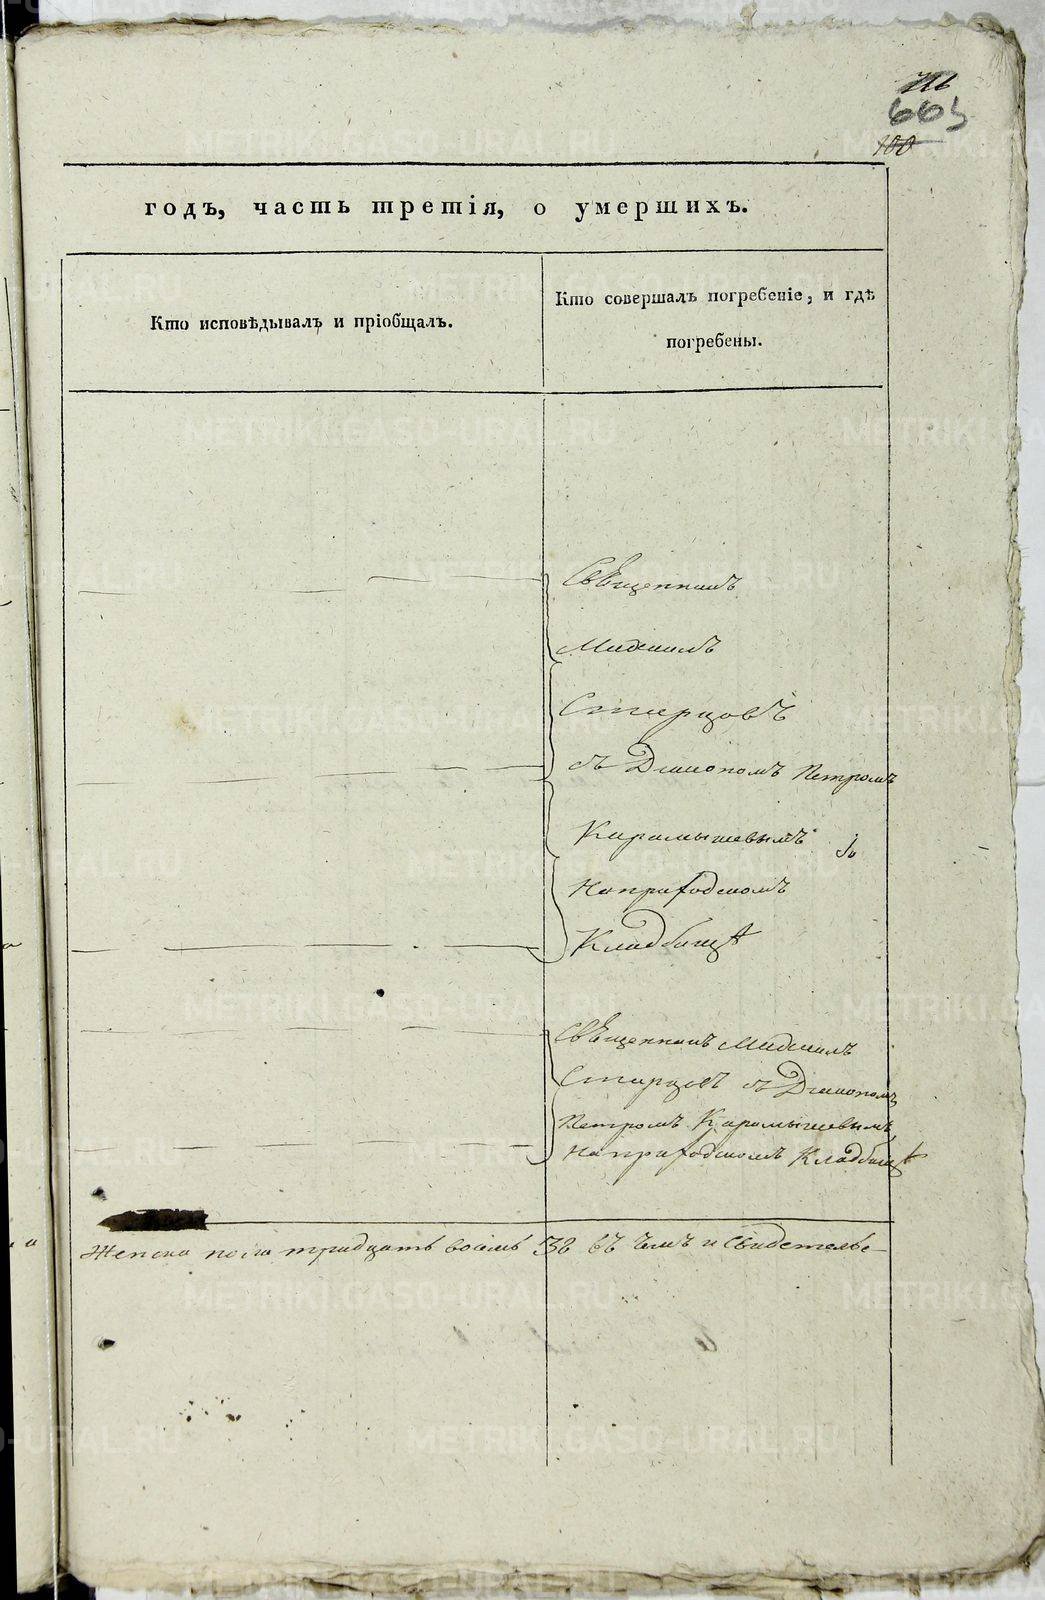 663
100
годъ, часть третія, о умершихъ.
Кто исповѣдывалъ и пріобщалъ.
Кто совершалъ погребеніе, и гдѣ
погребены.
Священникъ
Михаилъ
Старцовъ
съ Діакономъ Петромъ
Карамышевымъ
на приходскомъ
Кладбищѣ
Священникъ Михаилъ
Старцовъ съ Діакономъ
Петромъ Карамышевымъ
на приходскомъ Кладбищѣ
женска пола тридцать восемь 38 въ чемъ и свидетельс–
METRIKI.GASO-URAL.RU